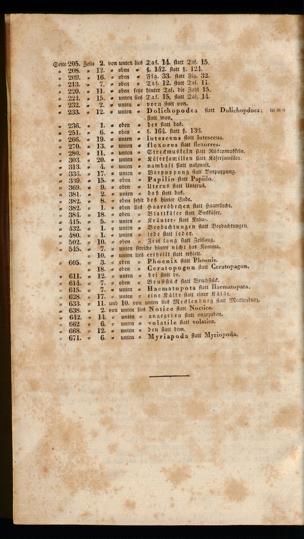 Seite 205. Zeile 2. von unten lies Taf. 14. statt Taf. 15.
„ 208. „ 12. „ oben „ §. 142. statt §. 124.
„ 209. „ 16. „ oben „ Fig. 33. statt Fig. 32.
„ 213. „ 7. „ oben „ Taf. 12. statt Taf. 11.
„ 220. „ 11. „ oben setze hinter Taf. die Zahl 15.
„ 224. „ 15. „ unten lies Taf. 15. statt Taf. 14.
„ 232. „ 2. „ unten „ vorn statt von.
„ 233. „ 12. „ unten „ Dolichopodes statt Dolichopdoes;
statt von.
„ 236. „ 1. „ oben „ des statt das.
„ 251. „ 6. „ oben „ §. 164. statt §.
„ 266. „ 19. „ unten „ lutescens statt
„ 270. „ 13. „ unten „ flexores statt
„ 280. „ 11. „ unten „ Streckmuskeln statt
„ 303. „ 20. „ unten „ Käferfamilien statt
„ 313. „ 4. „ unten „ namhaft statt
„ 333. „ 17. „ unten „ Verpuppung statt
„ 339. „ 15. „ oben „ Papilio statt
„ 369. „ 9. „ oben „ Uterus statt Unterus.
„ 381. „ 2. „ unten „ des statt das.
„ 382. „ 8. „ oben fehlt des hinter Ende.
„ 382. „ 1. „ oben lies
„ 384. „ 18. „ oben „ Blattkäfer statt
„ 415. „ 5. „ unten „ statt
„ 432. „ 1. „ unten „ Beobachtungen statt
„ 480. „ 1. „ unten „ jede statt jeder.
„ 502. „ 10. „ oben „ Zeit lang statt Zeitlang.
„ 545. „ 7. „ unten streiche hinter nicht das Komma.
„ 10. „ unten lies ertheilt statt
„ 605. „ 3. „ oben „ Phoenix statt
„ 18. „ oben „ Ceratopogon statt Ceratopagon.
„ 611. „ 12. „ oben „ bei statt
„ 614. „ 7. „ oben „ Brustück statt
„ 615. „ 7. „ unten „ Haematopota statt Haematopata.
„ 628. „ 17. „ unten „ eine Kälte statt einer Kälte.
„ 633. „ 11. und 10. von unten lies Mecklenburg statt
„ 638. „ 2. von unten lies Notice statt Noctice.
„ 642. „ 14. „ unten „ anzugeben statt
„ 662 „ 6. „ unten „ volatile statt
„ 668. „ 12. „ unten „ den statt dem.
„ 671. „ 6. „ unten „ Myriapoda statt Myriopoda.